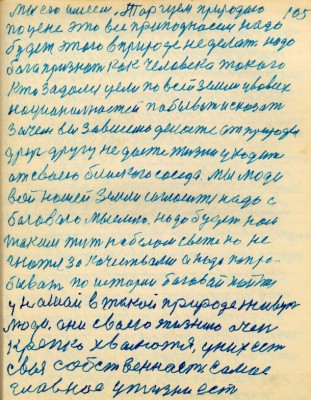 мы его имеем. Торгуем природаю 165
по цене это все приподносем надо
будет этого в природе неделать надо
бога признат как человека такого
Кто задалси цели по всей земли увсех
националностей побыват исказат
зачем вы завистно делаете от природы
друг другу не даете жизни уходите
от своего близкого соседа. мы люди
всей нашей Земли согласит надо с
боговаю мыслию. надо будет нам
таким тут на белом свете но не
гнатся за качествам а надо попро-
быват по истории боговай пойти
у нашай в такой природе живут
люди, они своею жизнию очен
крепко хвалятся, у них ест
своя собственност самае
главное у жизни ест